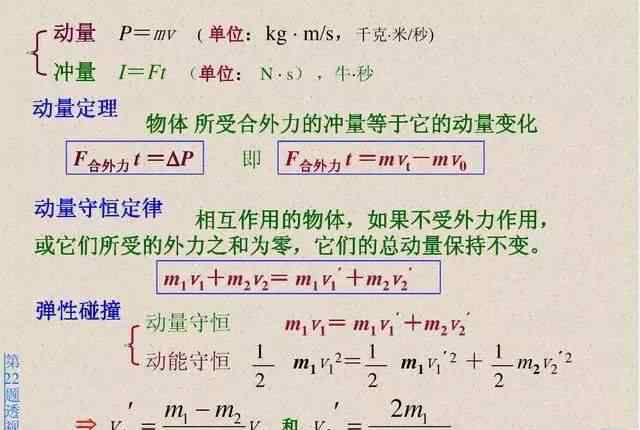 动量 P=mv (单位: kg · m/s, 千克·米/秒)
冲量 I=Ft (单位: N · s) , 牛·秒
动量定理
物体 所受合外力的冲量等于它的动量变化
F合外力 t =ΔP 即 F合外力 t =m vt−m v0
动量守恒定律
相互作用的物体，如果不受外力作用，
或它们所受的外力之和为零，它们的总动量保持不变。
m1 v1+m2 v2= m1 v1′+m2 v2′
弹性碰撞
动量守恒 m1 v1= m1 v1′+m2 v2′
动能守恒 1/2 m1 v1²=1/2 m1 v1′² + 1/2 m2 v2′²
第22题透视
⇒ v ′ = m1 − m2 v 和 v ′ = 2m1